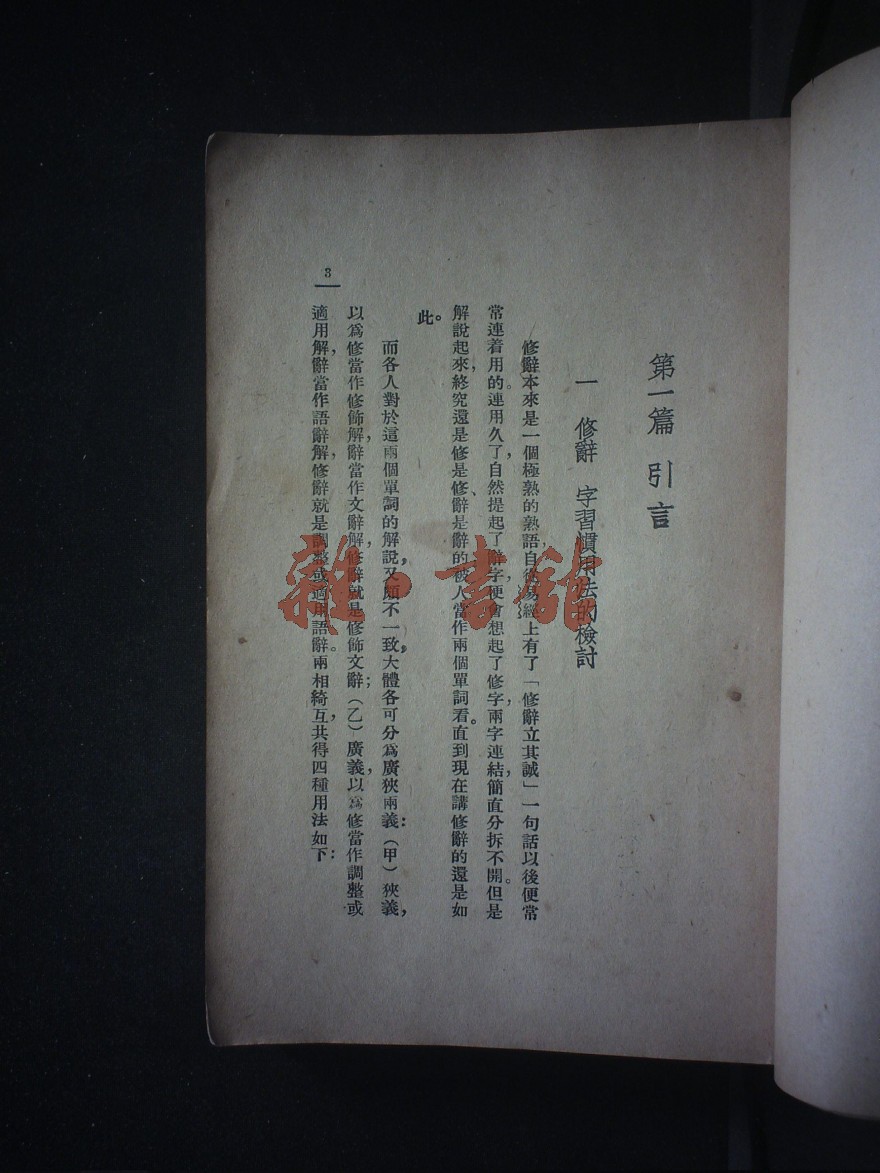 第一篇 引言
一 修辭 字習慣用法的檢討
修辭本來是一個極熟的熟語,自從易經上有了「修辭立其誠」一句話以後便常
常連着用的。連用久了,自然提起了辭字,便會想起了修字,兩字連結,簡直分拆不開。但是
解說起來,終究還是修是修、辭是辭的,被人當作兩個單詞看。直到現在講修辭的還是如
此。
而各人對於這兩個單詞的解說,又頗不一致,大體各可分爲廣狹兩義:(甲)狹義,
以爲修當作修飾解,辭當作文辭解,修辭就是修飾文辭;(乙)廣義,以爲修當作調整或
適用解,辭當作語辭解,修辭就是調整或適用語辭。兩相綺互,共得四種用法如下:
3
雜·書館